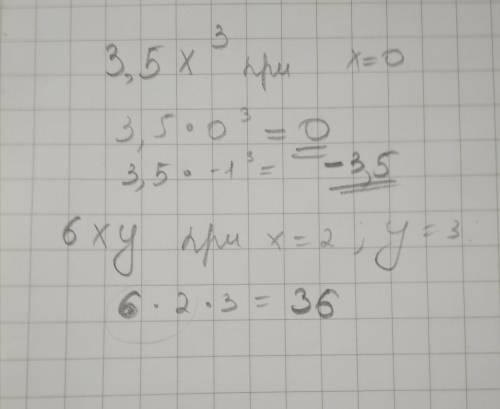 3,5x³ при x=0
3,5 · 0³ = 0
3,5 · -1³ = -3,5
6xy при x=2; y=3
6 · 2 · 3 = 36